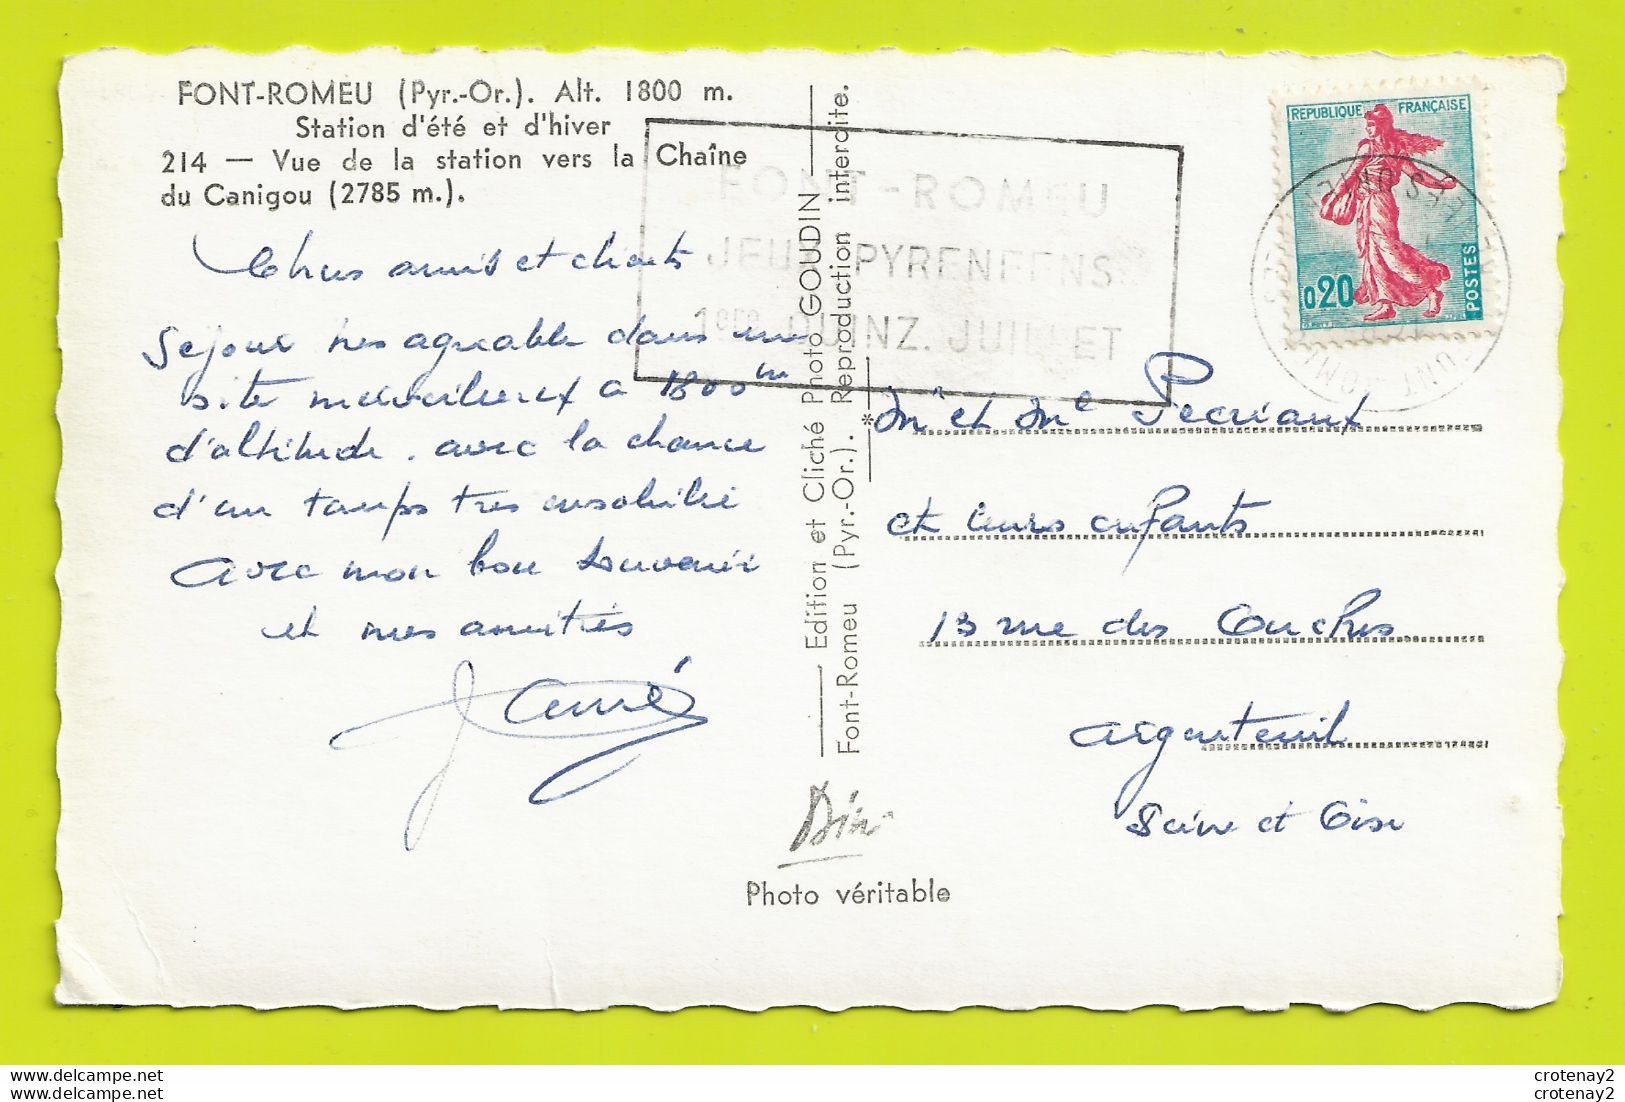 FONT-ROMEU (Pyr.-Or.). Alt. 1800 m.
Station d'été et d'hiver
214 — Vue de la station vers la Chaîne
du Canigou (2785 m.).
Chers amis et chants
Séjour très agréable dans un
site merveilleux a 1800 m
d'altitude. avec la chance
d'un temps très ensoleillé
Avec mon bon souvenir
et mes amitiés
Edition et Cliché Photo GOUDIN
Font-Romeu (Pyr.-Or.). Reproduction interdite.
Photo véritable
FONT-ROMEU
JEUX PYRENEENS
1ère QUINZ. JUILLET
REPUBLIQUE FRANÇAISE
0,20
POSTES
Mr et Me Pecriaux
et leurs enfants
13 rue des Ouches
Argenteuil
Seine et Oise
crotenay2
crotenay2
Les images sont la propriété de leurs auteurs
Pictures are copyright of their owners